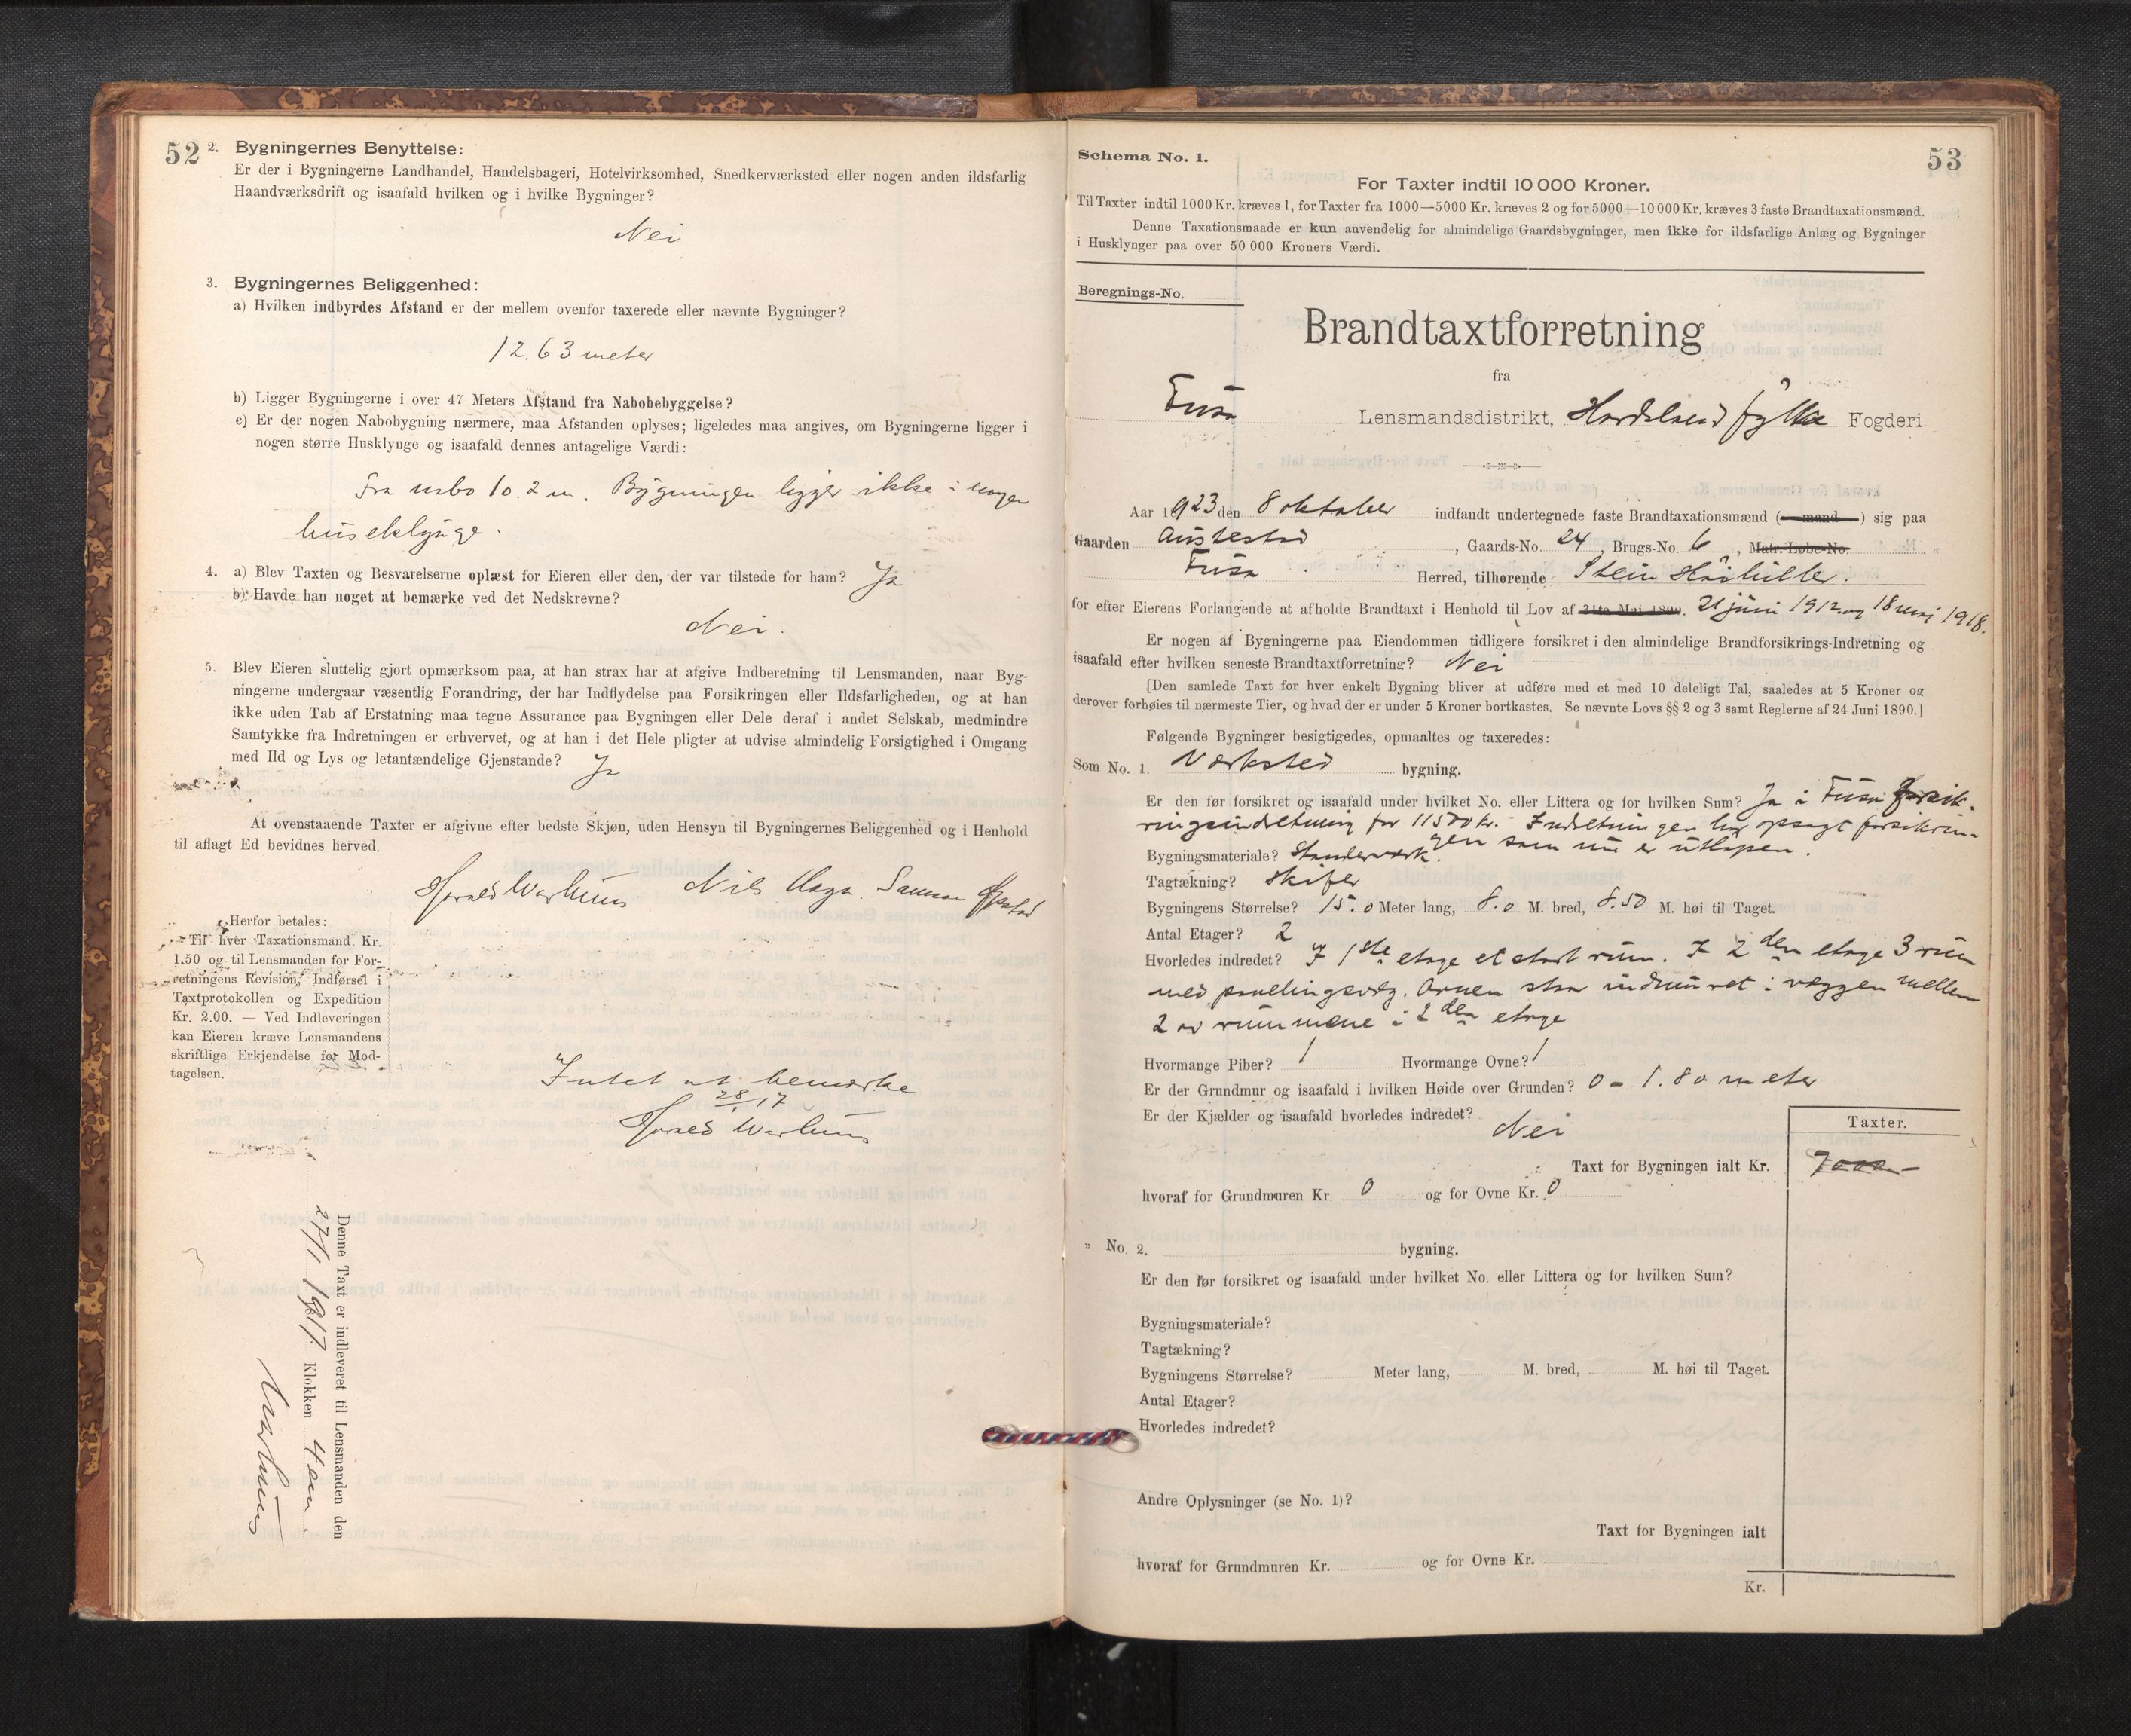 52
2. Bygningernes Benyttelse:
Er der i Bygningerne Landhandel, Handelsbageri, Hotelvirksomhed, Snedkerværksted eller nogen anden ildsfarlig
Haandværksdrift og isaafald hvilken og i hvilke Bygninger?
Nei
3. Bygningernes Beliggenhed:
a) Hvilken indbyrdes Afstand er der mellem ovenfor taxerede eller nævnte Bygninger?
12.63 meter
b) Ligger Bygningerne i over 47 Meters Afstand fra Nabobebyggelse?
c) Er der nogen Nabobygning nærmere, maa Afstanden oplyses; ligeledes maa angives, om Bygningerne ligger i
nogen større Husklynge og isaafald dennes antagelige Værdi:
Fra nabo 10.2 m. Bygningen ligger ikke i nogen
huseklynge.
4. a) Blev Taxten og Besvarelserne oplæst for Eieren eller den, der var tilstede for ham? Ja
b) Havde han noget at bemærke ved det Nedskrevne?
Nei.
5. Blev Eieren sluttelig gjort opmærksom paa, at han strax har at afgive Indberetning til Lensmanden, naar Byg-
ningerne undergaar væsentlig Forandring, der har Indflydelse paa Forsikringen eller Ildsfarligheden, og at han
ikke uden Tab af Erstatning maa tegne Assurance paa Bygningen eller Dele deraf i andet Selskab, medmindre
Samtykke fra Indretningen er erhvervet, og at han i det Hele pligter at udvise almindelig Forsigtighed i Omgang
med Ild og Lys og letantændelige Gjenstande? Ja
At ovenstaaende Taxter er afgivne efter bedste Skjøn, uden Hensyn til Bygningernes Beliggenhed og i Henhold
til aflagt Ed bevidnes herved.
Nils Samson
Herfor betales:
Til hver Taxationsmand Kr.
1.50 og til Lensmanden for For-
retningens Revision, Indførsel i
Taxtprotokollen og Expedition
Kr. 2.00. — Ved Indleveringen
kan Eieren kræve Lensmandens
skriftlige Erkjendelse for Mod-
tagelsen.
Intet at bemærke
28/1 17
Denne Taxt er indleveret til Lensmanden den
27/1 1917. Klokken 4 em.
Schema No. 1.
53
For Taxter indtil 10 000 Kroner.
Til Taxter indtil 1000 Kr. kræves 1, for Taxter fra 1000—5000 Kr. kræves 2 og for 5000—10 000 Kr. kræves 3 faste Brandtaxationsmænd.
Denne Taxationsmaade er kun anvendelig for almindelige Gaardsbygninger, men ikke for ildsfarlige Anlæg og Bygninger
i Husklynger paa over 50 000 Kroners Værdi.
Beregnings-No.
Brandtaxtforretning
fra
Fusa Lensmandsdistrikt, Hordaland fylke Fogderi
Aar 1923 den 8 oktober indfandt undertegnede faste Brandtaxationsmænd (—mand—) sig paa
Gaarden Austestad, Gaards-No. 24, Brugs-No. 6, Matr. Løbe-No.
Fusa Herred, tilhørende Stein
for efter Eierens Forlangende at afholde Brandtaxt i Henhold til Lov af 31te Mai 1890. 21 juni 1912 og 18 1918.
Er nogen af Bygningerne paa Eiendommen tidligere forsikret i den almindelige Brandforsikrings-Indretning og
isaafald efter hvilken seneste Brandtaxtforretning? Nei
[Den samlede Taxt for hver enkelt Bygning bliver at udføre med et med 10 deleligt Tal, saaledes at 5 Kroner og
derover forhøies til nærmeste Tier, og hvad der er under 5 Kroner bortkastes. Se nævnte Lovs §§ 2 og 3 samt Reglerne af 24 Juni 1890.]
Følgende Bygninger besigtigedes, opmaaltes og taxeredes:
Som No. 1. Værksted bygning.
Er den før forsikret og isaafald under hvilket No. eller Littera og for hvilken Sum? Ja i Fusa forsik-
ringsindretning for 11500 kr. Indretningen har opsagt forsikrin-
gen som nu er utløpen.
Bygningsmateriale? Standerverk.
Tagtækning? skifer
Bygningens Størrelse? 15.0 Meter lang, 8.0 M. bred, 8.50 M. høi til Taget.
Antal Etager? 2
Hvorledes indredet? I 1ste etage et stort rum. I 2den etage 3 rum
med panelingsvæg. Ovnen staar indmuret i væggen mellem
2 av rummene i 2den etage
Hvormange Piber? 1 Hvormange Ovne? 1
Er der Grundmur og isaafald i hvilken Høide over Grunden? 0 - 1.80 meter
Er der Kjælder og isaafald hvorledes indredet? Nei
Taxter.
Taxt for Bygningen ialt Kr. 7000.—
hvoraf for Grundmuren Kr. 0 og for Ovne Kr. 0
" No. 2. bygning.
Er den før forsikret og isaafald under hvilket No. eller Littera og for hvilken Sum?
Bygningsmateriale?
Tagtækning?
Bygningens Størrelse? Meter lang, M. bred, M. høi til Taget.
Antal Etager?
Hvorledes indredet?
Andre Oplysninger (se No. 1)?
Taxt for Bygningen ialt
hvoraf for Grundmuren Kr. og for Ovne Kr.
Kr.